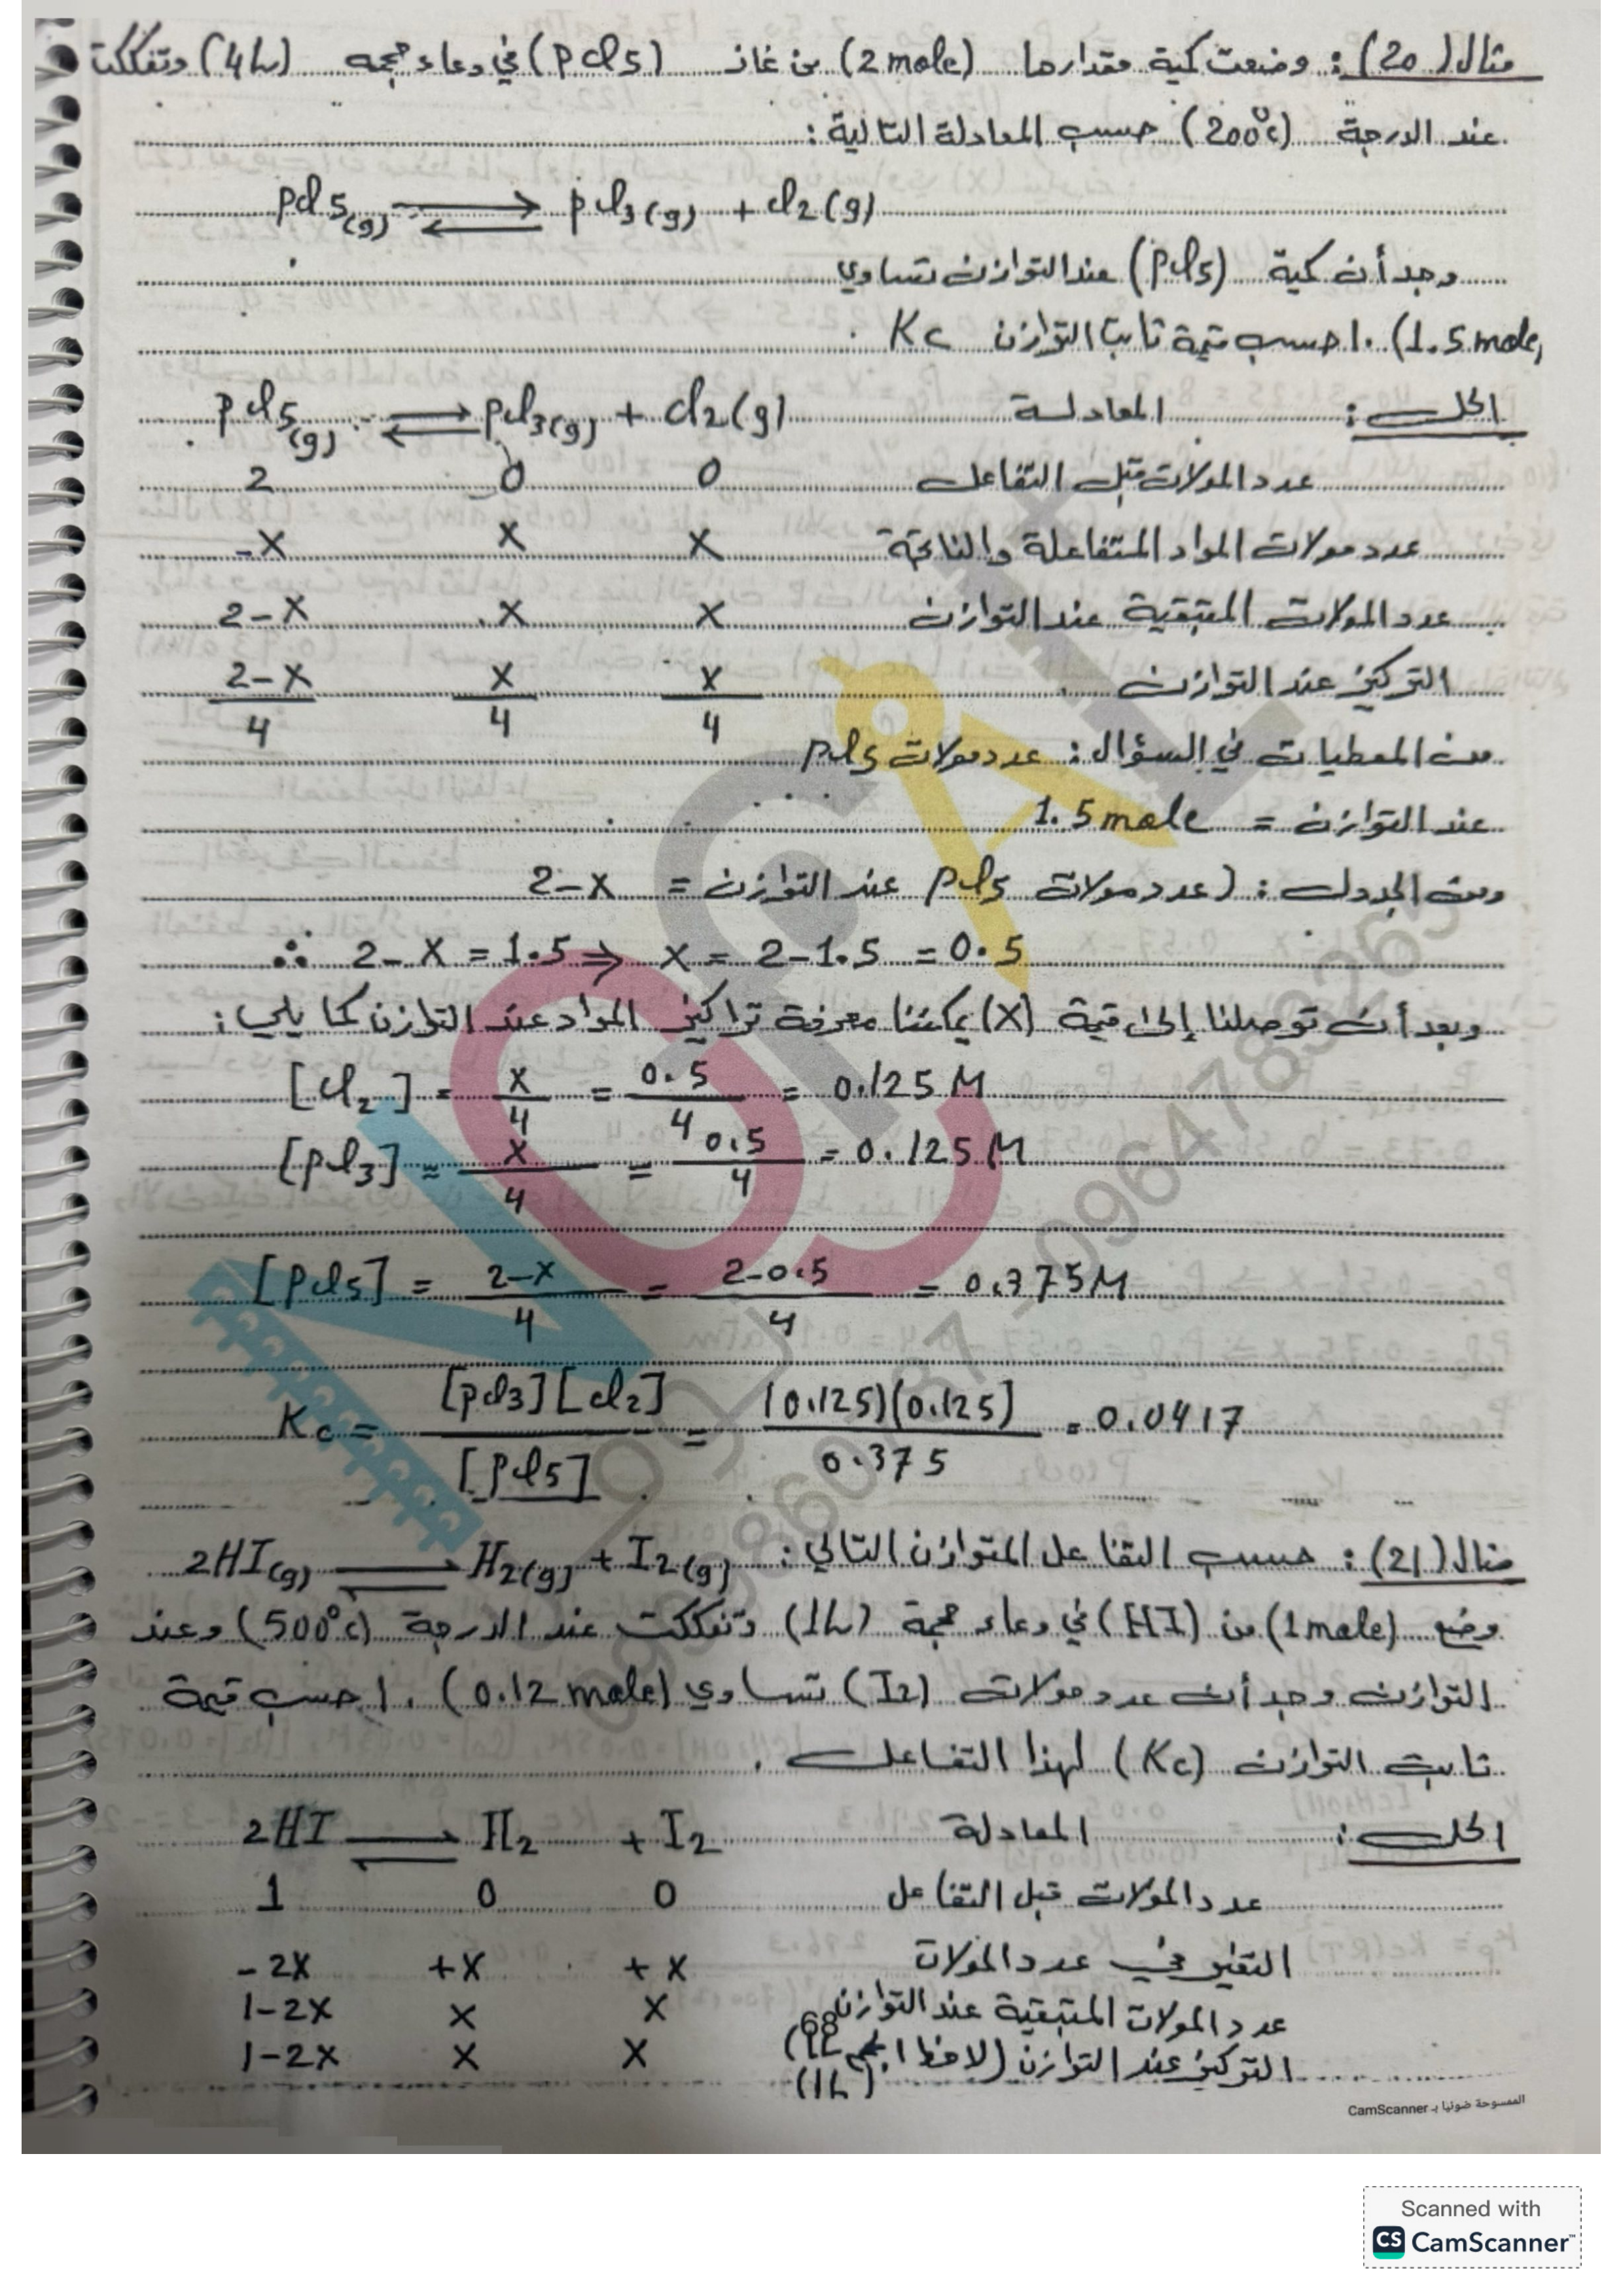 مثال (20): وضعت كمية مقدارها (2 mole) من غاز (pcl5) في وعاء حجمه (4L) وتفككت
عند الدرجة (200°c) حسب المعادلة التالية:
pcl5(g) ⇌ pcl3(g) + cl2(g)
وجد أن كمية (pcl5) عند التوازن تساوي
(1.5 mole). احسب قيمة ثابت التوازن Kc
الحل: المعادلة pcl5(g) ⇌ pcl3(g) + cl2(g)
عدد المولات قبل التفاعل 2 0 0
عدد مولات المواد المتفاعلة والناتجة -X X X
عدد المولات المتبقية عند التوازن 2-X X X
التركيز عند التوازن (2-X)/4 X/4 X/4
من المعطيات في السؤال: عدد مولات pcl5
عند التوازن = 1.5 mole
ومن الجدول: (عدد مولات pcl5 عند التوازن = 2-X
∴ 2-X = 1.5 ⇒ X = 2-1.5 = 0.5
وبعد أن توصلنا إلى قيمة (X) يمكننا معرفة تراكيز المواد عند التوازن كما يلي:
[cl2] = X/4 = 0.5/4 = 0.125 M
[pcl3] = X/4 = 0.5/4 = 0.125 M
[pcl5] = (2-X)/4 = (2-0.5)/4 = 0.375 M
Kc = [pcl3][cl2]/[pcl5] = (0.125)(0.125)/0.375 = 0.0417
مثال (21): حسب التفاعل المتوازن التالي: 2HI(g) ⇌ H2(g) + I2(g)
وضع (1 mole) من (HI) في وعاء حجمة (1L) وتفككت عند الدرجة (500°c) وعند
التوازن وجد أن عدد مولات (I2) تساوي (0.12 mole). احسب قيمة
ثابت التوازن (Kc) لهذا التفاعل.
الحل: المعادلة 2HI ⇌ H2 + I2
عدد المولات قبل التفاعل 1 0 0
التغير في عدد المولات -2X +X +X
عدد المولات المتبقية عند التوازن 1-2X X X
68
التركيز عند التوازن (لاحظ الحجم 1L) 1-2X X X
(1L)
الممسوحة ضوئيا بـ CamScanner
Scanned with
CS CamScanner™